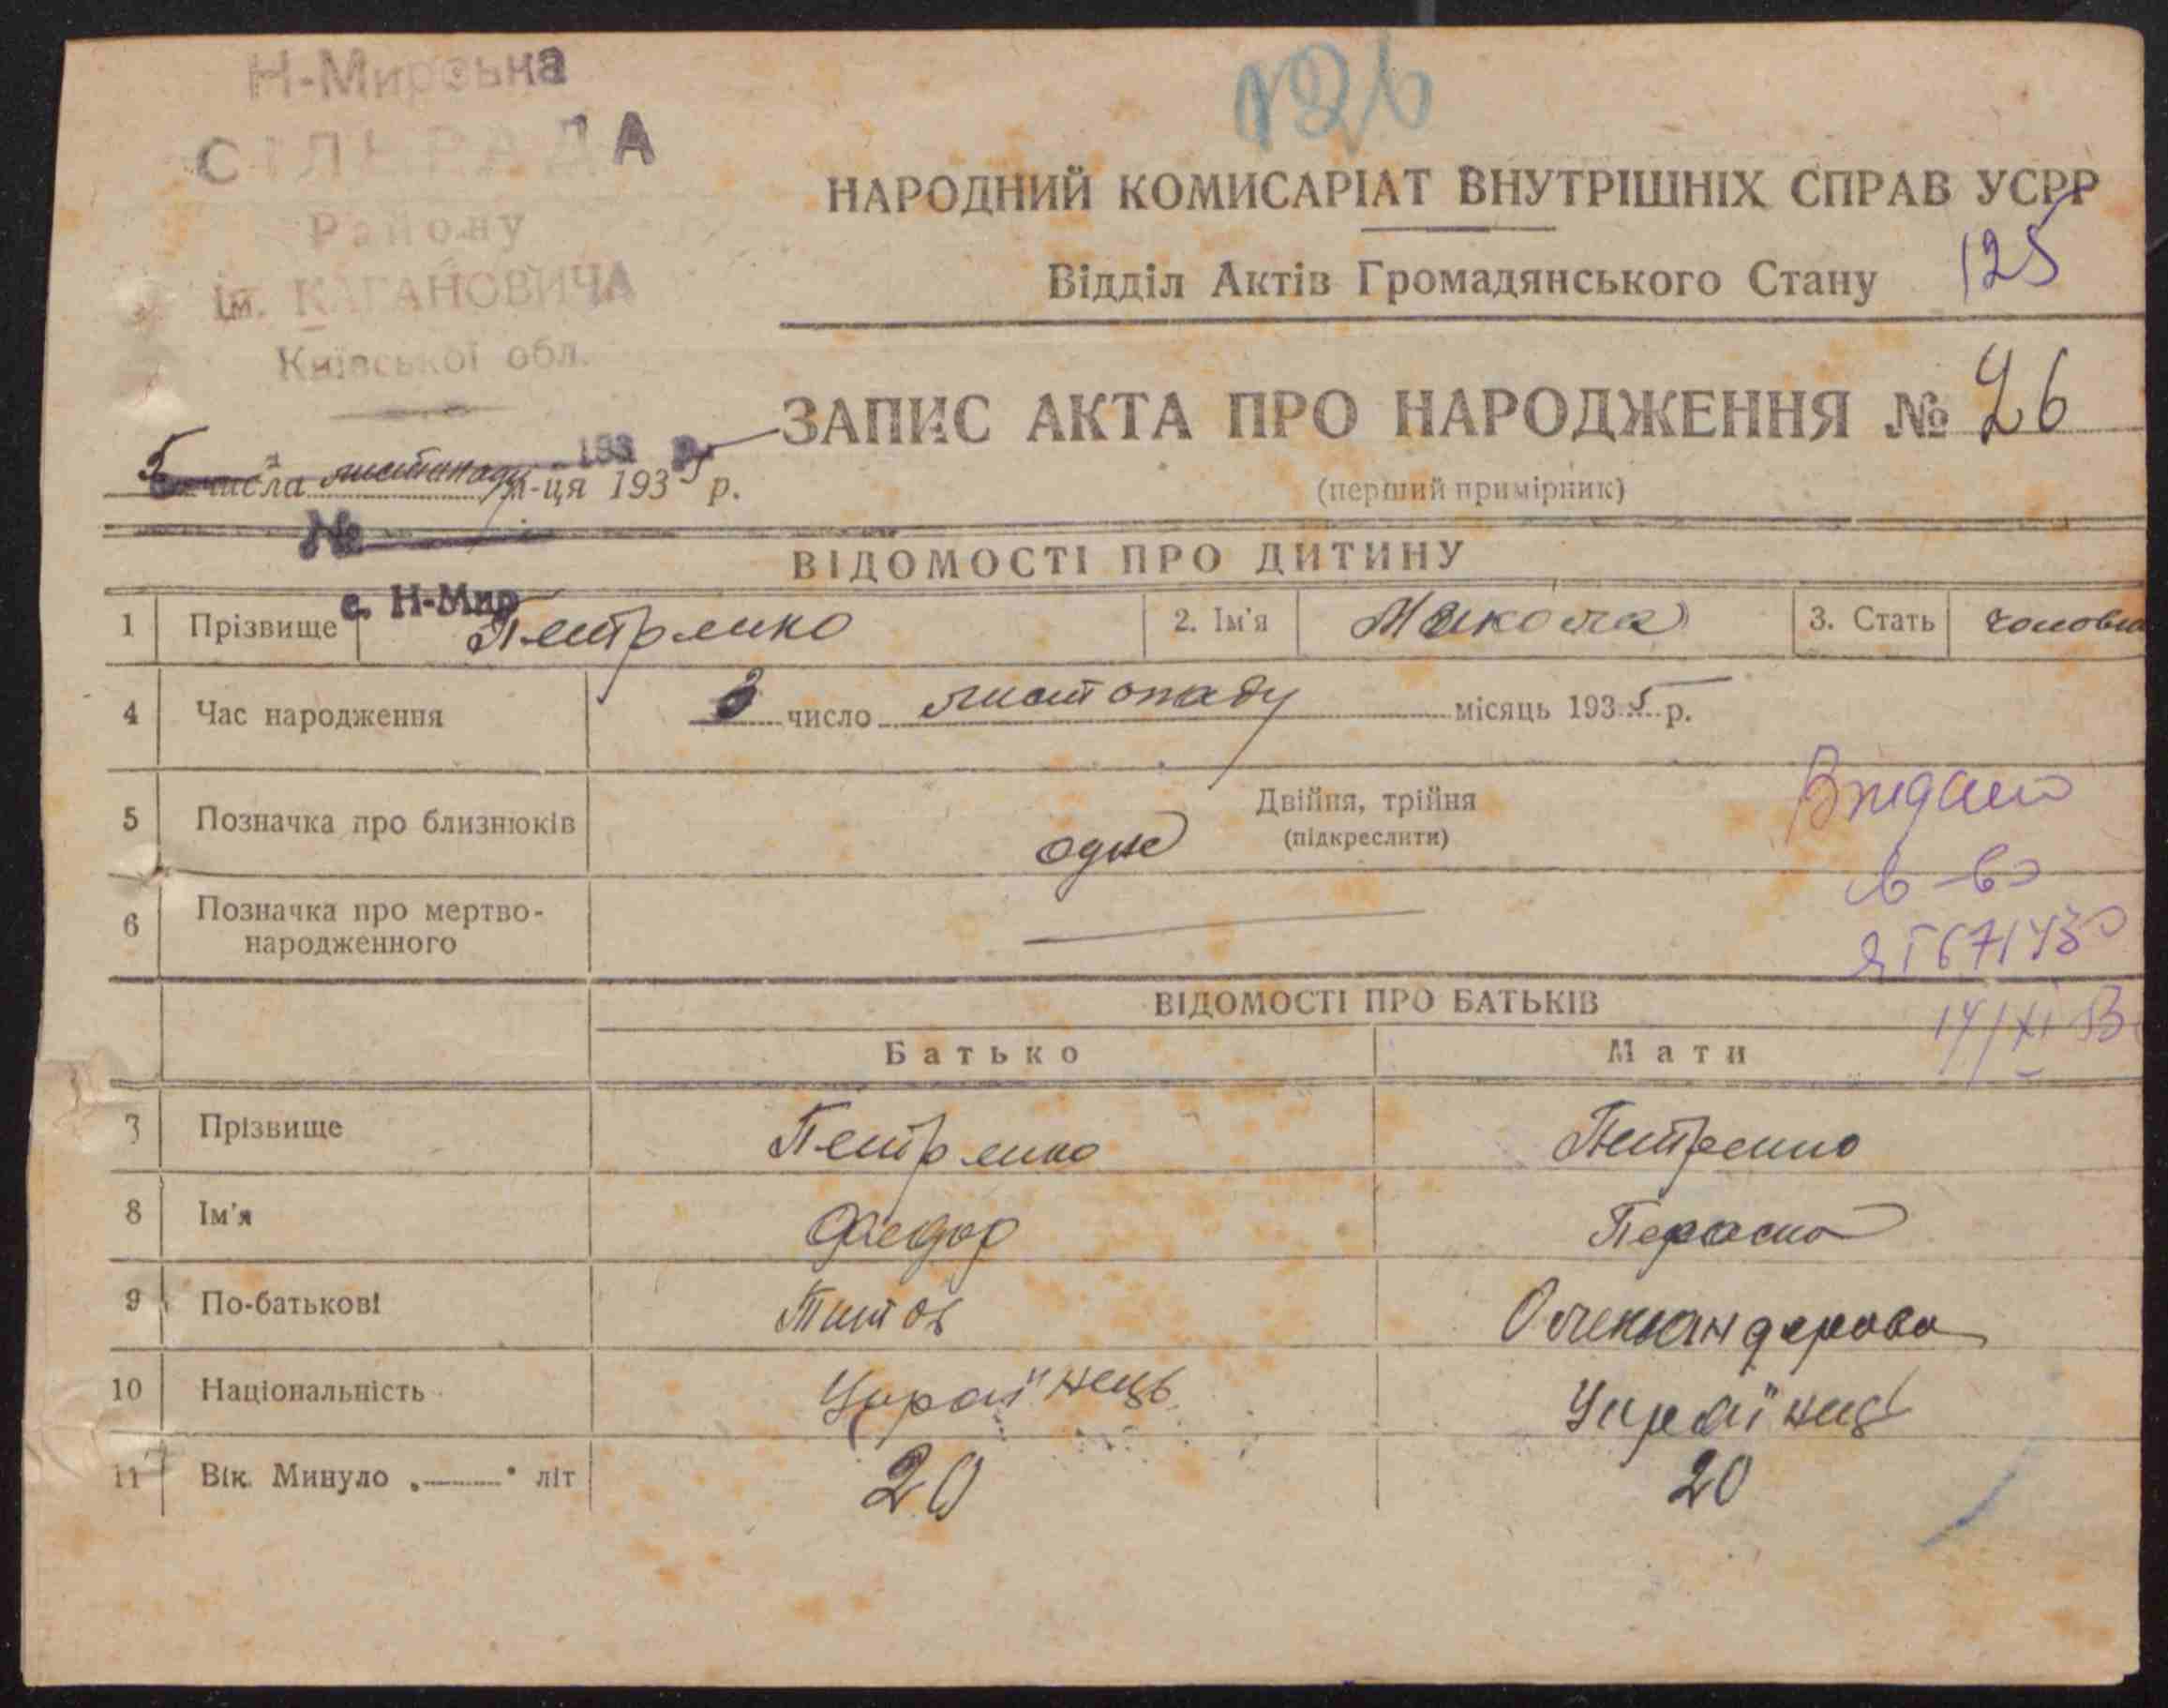 Н-Мирська
126
СІЛЬРАДА
НАРОДНИЙ КОМИСАРІАТ ВНУТРІШНІХ СПРАВ УСРР
Району
125
Відділ Актів Громадянського Стану
ім. КАГАНОВИЧА
Київської обл.
ЗАПИС АКТА ПРО НАРОДЖЕННЯ № 26
193 р.
5 числа листопаду м-ця 1935 р.
(перший примірник)
№
ВІДОМОСТІ ПРО ДИТИНУ
с. Н-Мир
1 Прізвище Петренко 2. Ім'я Микола 3. Стать
4 Час народження 3 число листопаду місяць 1935 р.
5 Позначка про близнюків одне Двійня, трійня
(підкреслити)
Видано
с-во
6 Позначка про мертво-
народженного
ЯГ 671430
ВІДОМОСТІ ПРО БАТЬКІВ
14/XI 53
Батько Мати
7 Прізвище Петренко Петренко
8 Ім'я Федор Параска
9 По-батькові Титов Олександерова
10 Національність Українець Українець
11 Вік. Минуло „ “ літ 20 20